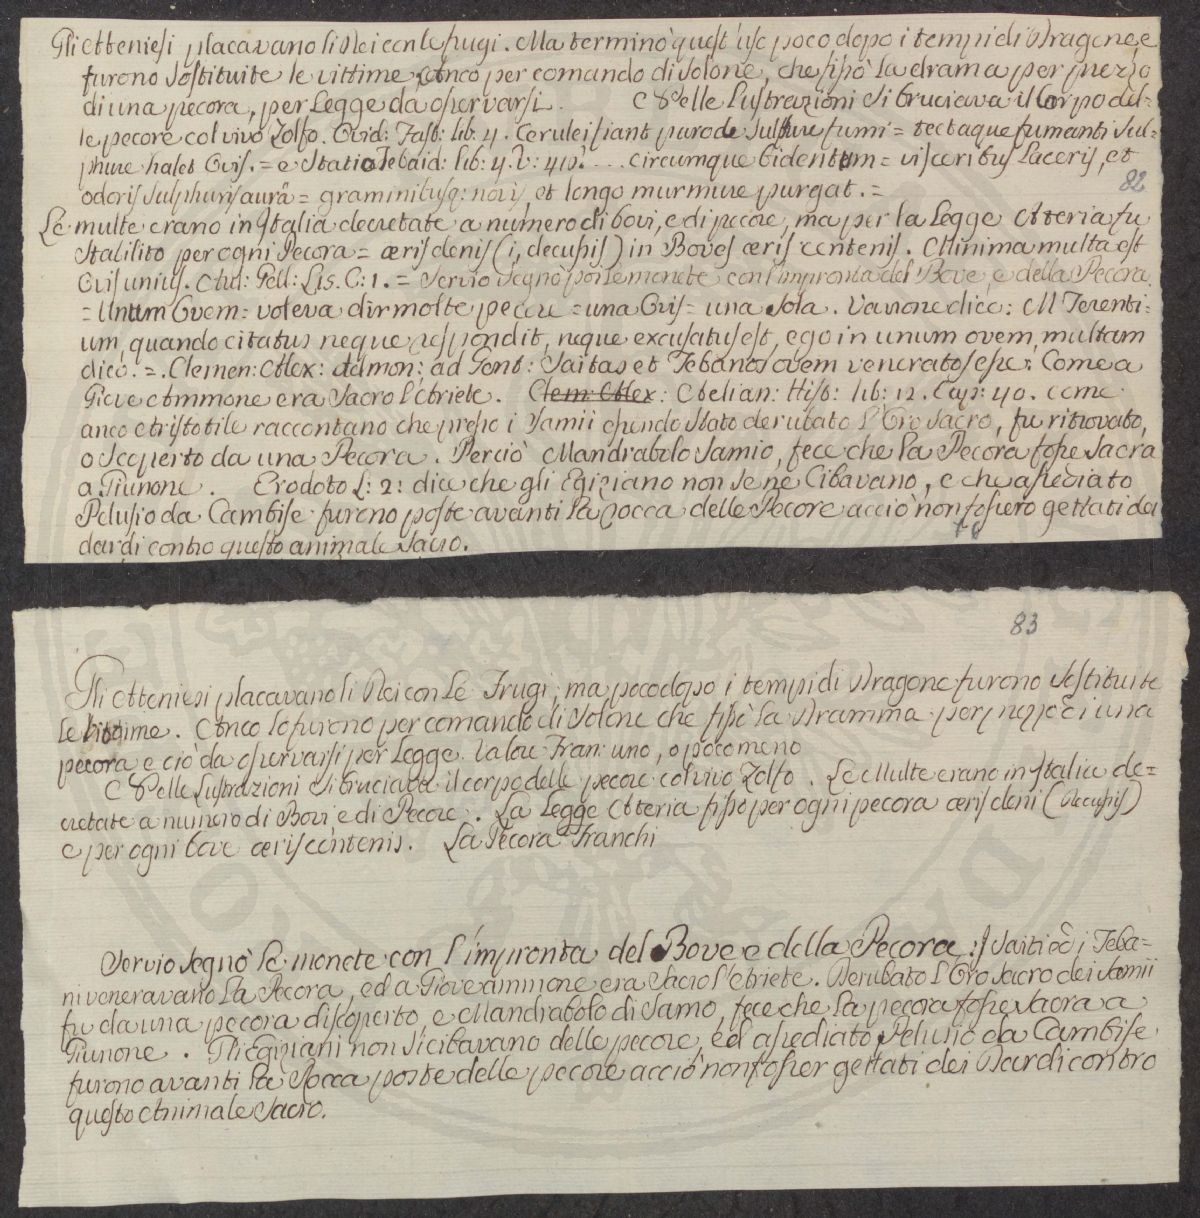 Gli Atteniesi placavano li Dei con le frugi. Ma terminò quest'uso poco dopo i tempi di Dragone, e
furono sostituite le vittime, Anco per comando di Solone, che fissò la drama per prezzo
di una pecora, per Legge da osservarsi. E Nelle Lustrazioni si bruciava il Corpo del=
le pecore col vivo Zolfo. Ovid: Fast: lib: 4. Cerulei fiant puro de Sulfure fumi = tectaque fumanti Sul=
phure halet Ovis. = e Statio Tebaid: lib: 4. V: 41?. ... circumque bidentum = visceribus laceris, et
odoris Sulphuris aurâ = graminibusq: novis, et longo murmure purgat. =
82
Le multe erano in Italia decretate a numero di bovi, e di pecore, ma per la Legge Ateria fu
stabilito per ogni Pecora = aeris denis (i, decussis) in Boves aeris centenis. Minima multa est
Ovis unius. Aul: Gell: Lis. C: 1. = Servio segnò poi le monete con l'impronta del Bove, e della Pecora
= Unum Ovem = voleva dir molte pecore = una Ovis = una Sola. Varrone dice: M Terenti=
um, quando citatus neque respondit, neque excusatus est, ego in unum ovem, multam
dico. =. Clemen: Alex: Admon: ad Gent: Saitas et Tebanos ovem veneratos esse: Come a
Giove Ammone era Sacro l'Ariete. Clem: Alex: Aelian: Hist: lib: 12. Cap: 40. come
anco Aristotile raccontano che presso i Samii essendo stato derubato l'Oro Sacro, fu ritrovato,
o scoperto da una Pecora. Perciò Mandrabolo Samio, fece che la Pecora fosse Sacra
a Giunone. Erodoto L: 2: dice che gli Egiziano non se ne Cibavano, e che assediato
Pelusio da Cambise furono poste avanti la Rocca delle Pecore acciò non fossero gettati dei
dardi contro questo animale Sacro.
83
Gli Atteniesi placavano li Dei con Le Frugi, ma poco dopo i tempi di Dragone furono Sostituite
le Vittime. Anco lo furono per comando di Solone che fissò la Dramma per prezzo di una
pecora e ciò da osservarsi per Legge. Valou Fran: uno, o poco meno
E Nelle Lustrazioni Si bruciava il corpo delle pecore col vivo Zolfo. Le Multe erano in Italia de=
cretate a numero di Bovi e di Pecore. La Legge Ateria fisso per ogni pecora aeris deni (Decussis)
e per ogni bove aeris centenis. La Pecora Franchi
Servio segnò le monete con l'impronta del Bove e della Pecora. I Saiti ed i Teba=
ni veneravano la Pecora, ed a Giove ammone era Sacro l'Ariete. Derubato l'Oro Sacro dei Samii
fu da una pecora discoperto, e Mandrabolo di Samo, fece che la pecora fosse Sacra a
Giunone. Gli Egiziani non si cibavano delle pecore, ed assediato Pelusio da Cambise
furono avanti la Rocca poste delle pecore acciò non fosser gettati dei Dardi contro
questo Animale Sacro.